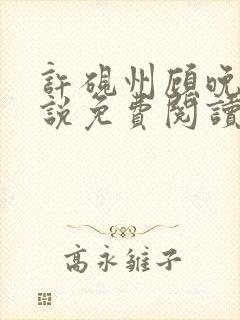 許硯州顧晚
說免費閱讀
高永雛子